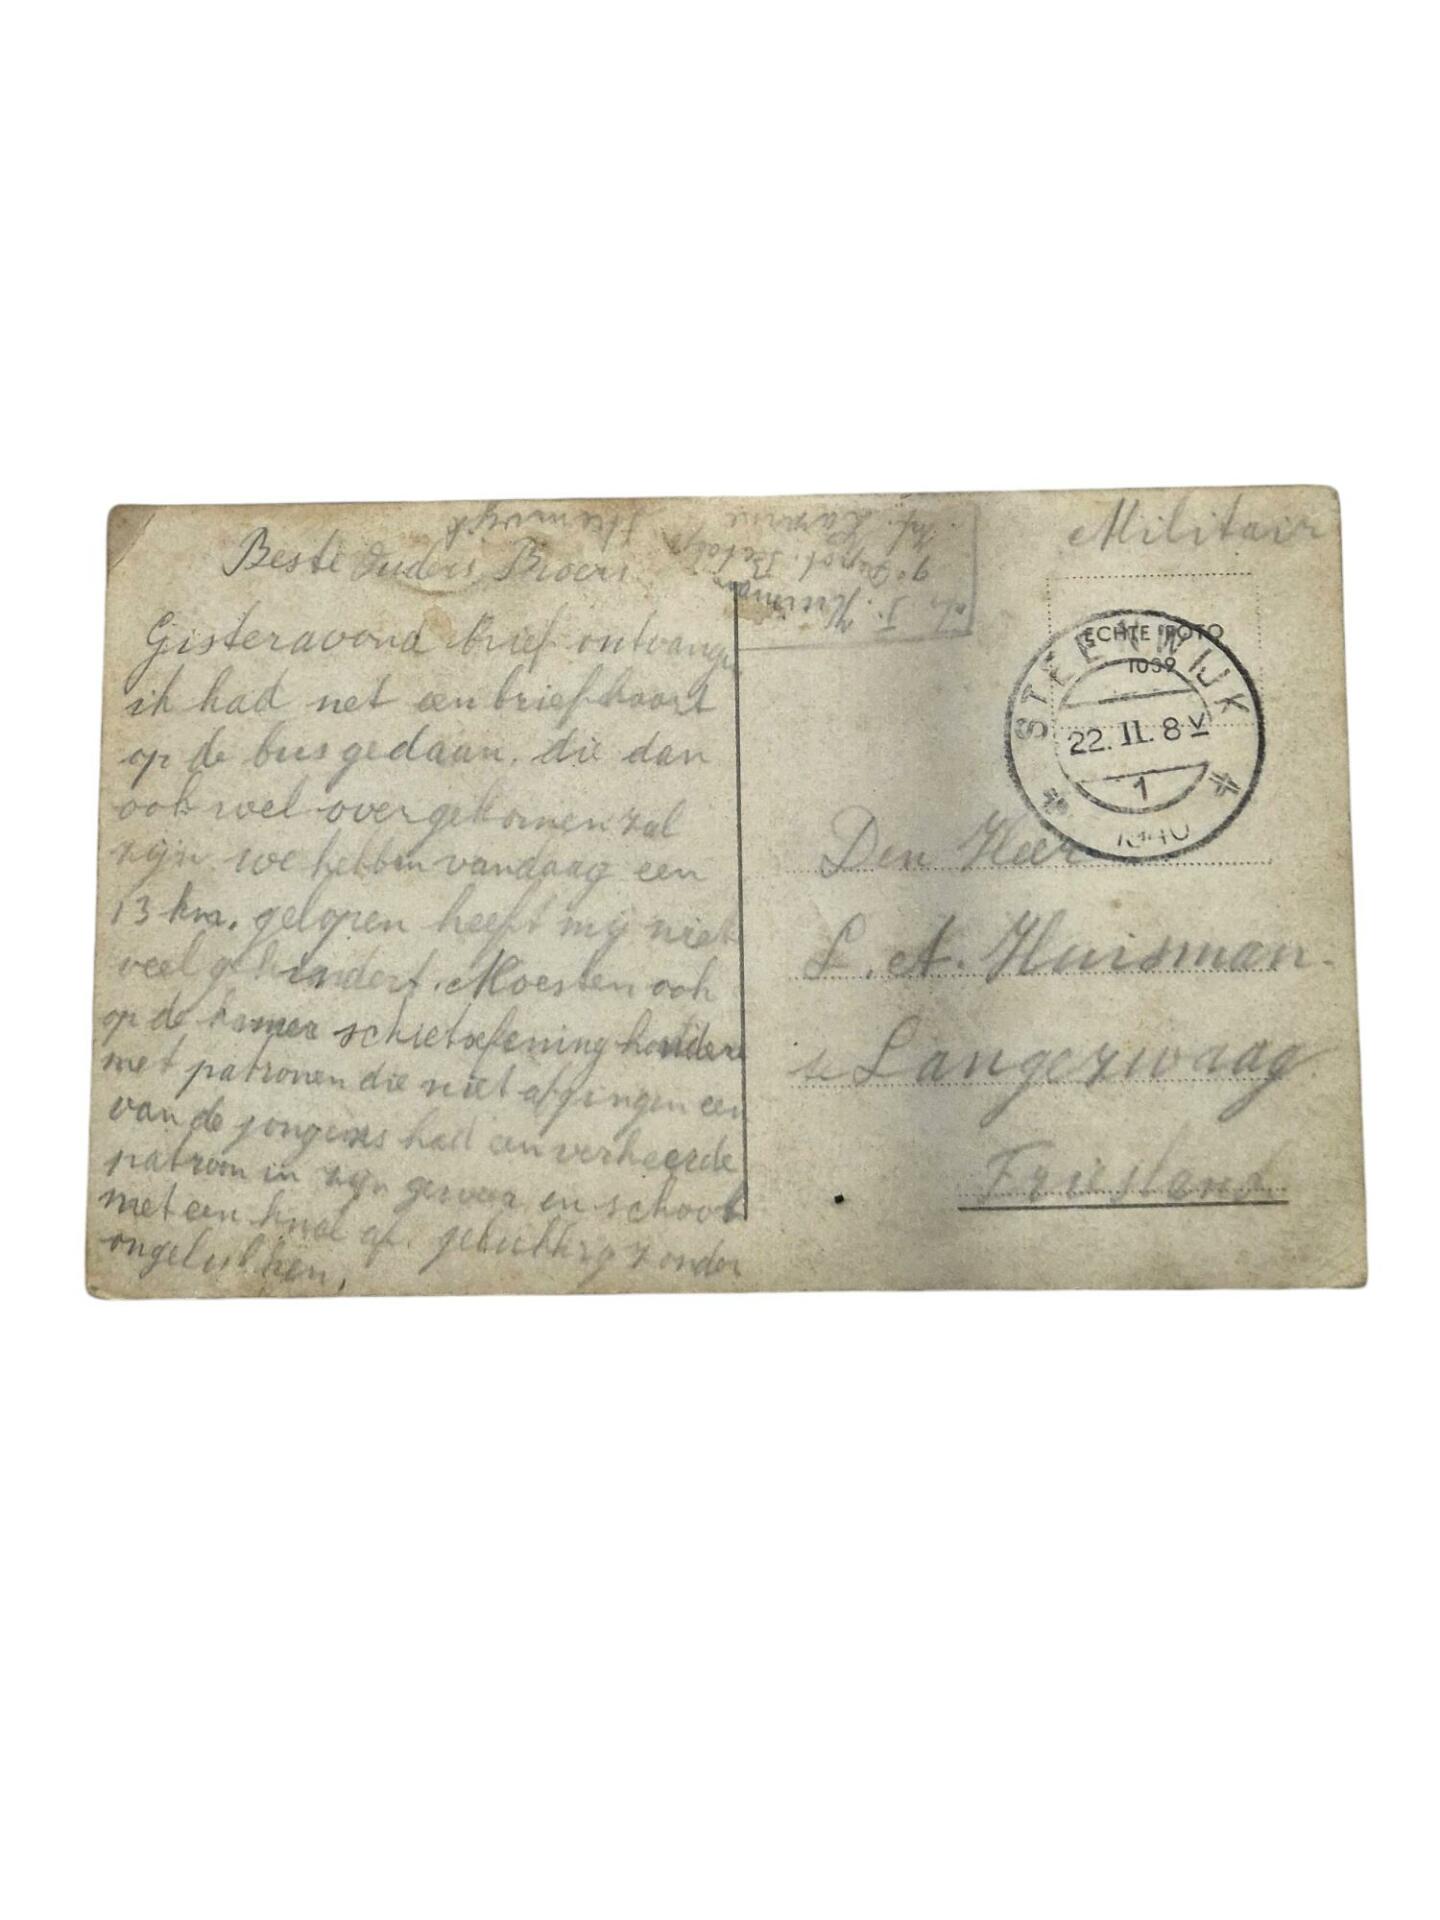 Beste Ouders, Broers
Gisteravond brief ontvangen
ik had net een briefkaart
op de bus gedaan. die dan
ook wel overgekomen zal
zijn we hebben vandaag een
13 km. gelopen heeft mij niet
veel gehindert. Moesten ook
op de kamer schietoefening houden
met patronen die niet afgingen een
van de jongens had een verkeerde
patroon in zijn geweer en schoot
met een knal af. gelukkig zonder
ongelukken.
J. Huisman
9e Depot. Bataljon
Inf. Kazerne
Steenwijk
Militair
ECHTE FOTO
1039
STEENWIJK
22. II. 8 V
1
1940
Den Heer
L. A. Huisman.
te Langezwaag
Friesland